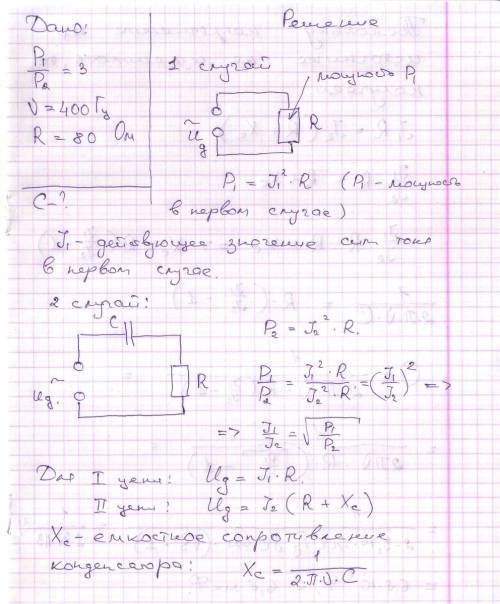 Дано:
Решение
P₁/P₂ = 3
ν = 400 Гц
R = 80 Ом
C - ?
1 случай
мощность P₁
~
U
д
R
P₁ = J₁² · R (P₁ - мощность
в первом случае)
J₁ - действующее значение силы тока
в первом случае.
2 случай:
C
~
Uд.
R
P₂ = J₂² · R.
P₁/P₂ = J₁² · R / J₂² · R = (J₁/J₂)² =>
=> J₁/J₂ = √P₁/P₂
Для I цепи: Uд = J₁ · R.
II цепи: Uд = J₂ (R + Xc)
Xc - емкостное сопротивление
конденсатора: Xc = 1/2·π·ν·C